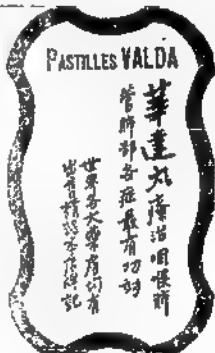 PASTILLES VALDA
華達丸療治咽喉肺
管肺部各症最有功効
世界各大藥房均有